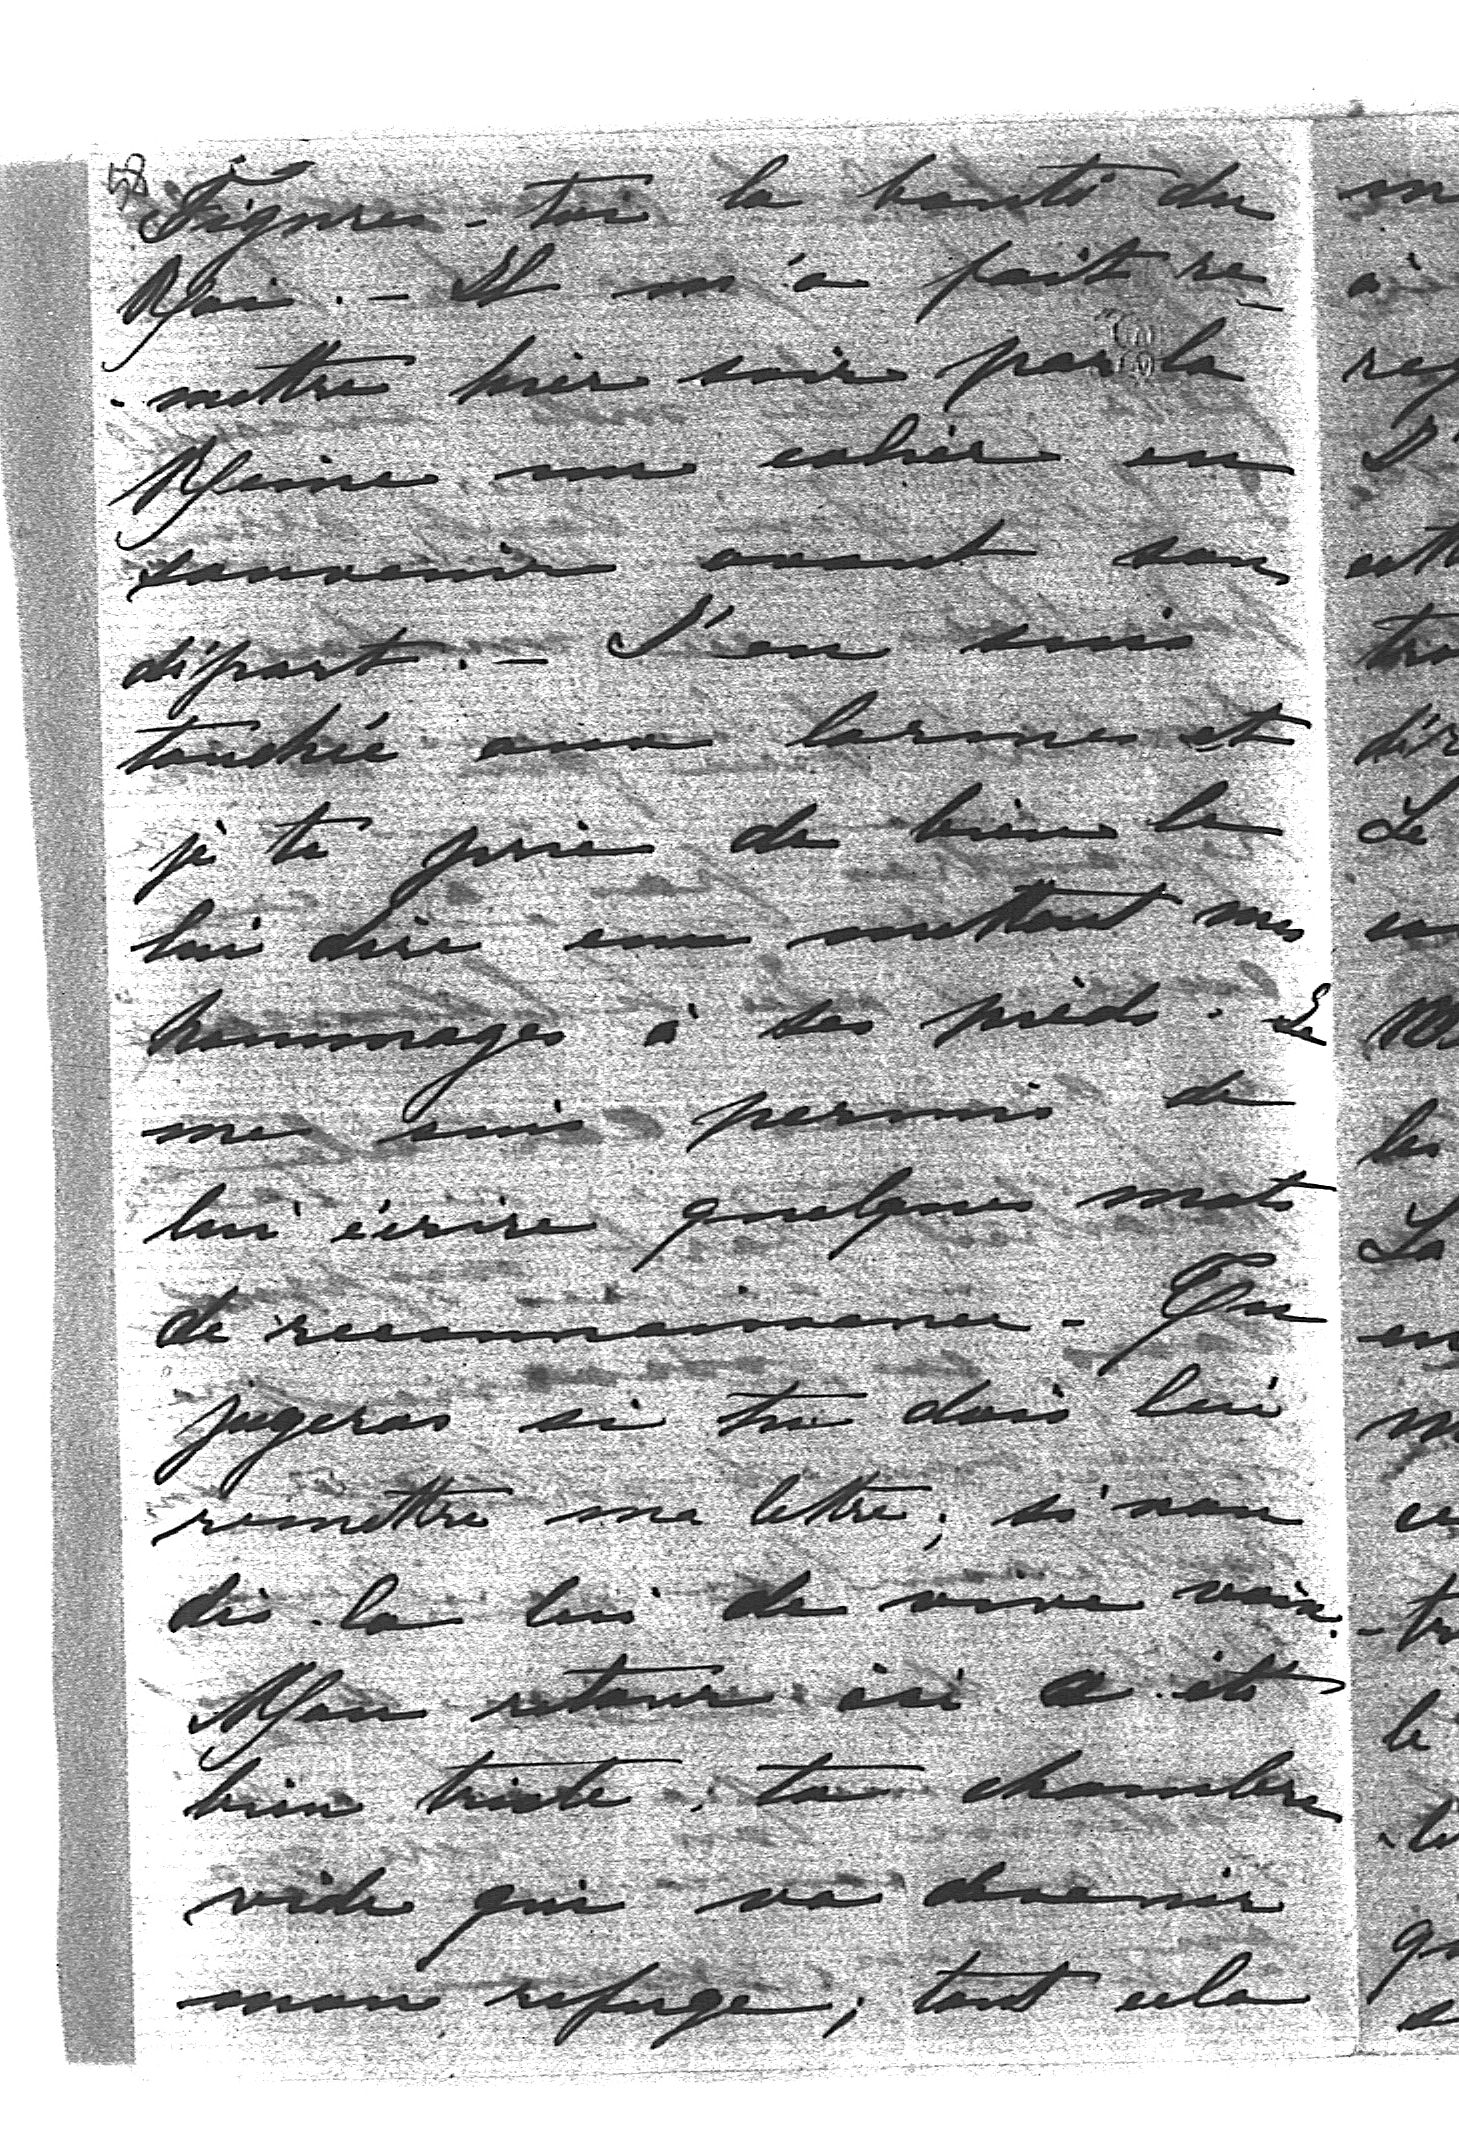 58
Figures-toi la bonté du
Roi. - Il m'a fait re
mettre hier soir par la
Reine un cahier en
souvenir avant son
départ. - J'en suis
touchée aux larmes et
je te prie de bien le
lui dire en mettant mes
hommages à ses pieds. Je
me suis permis de
lui écrire quelques mots
de reconnaissance. Tu
jugeras si tu dois lui
remettre ma lettre; si non
dis-la lui de vive voix.-
Mon retour ici a été
bien triste; ta chambre
vide qui va devenir
mon refuge; tout cela